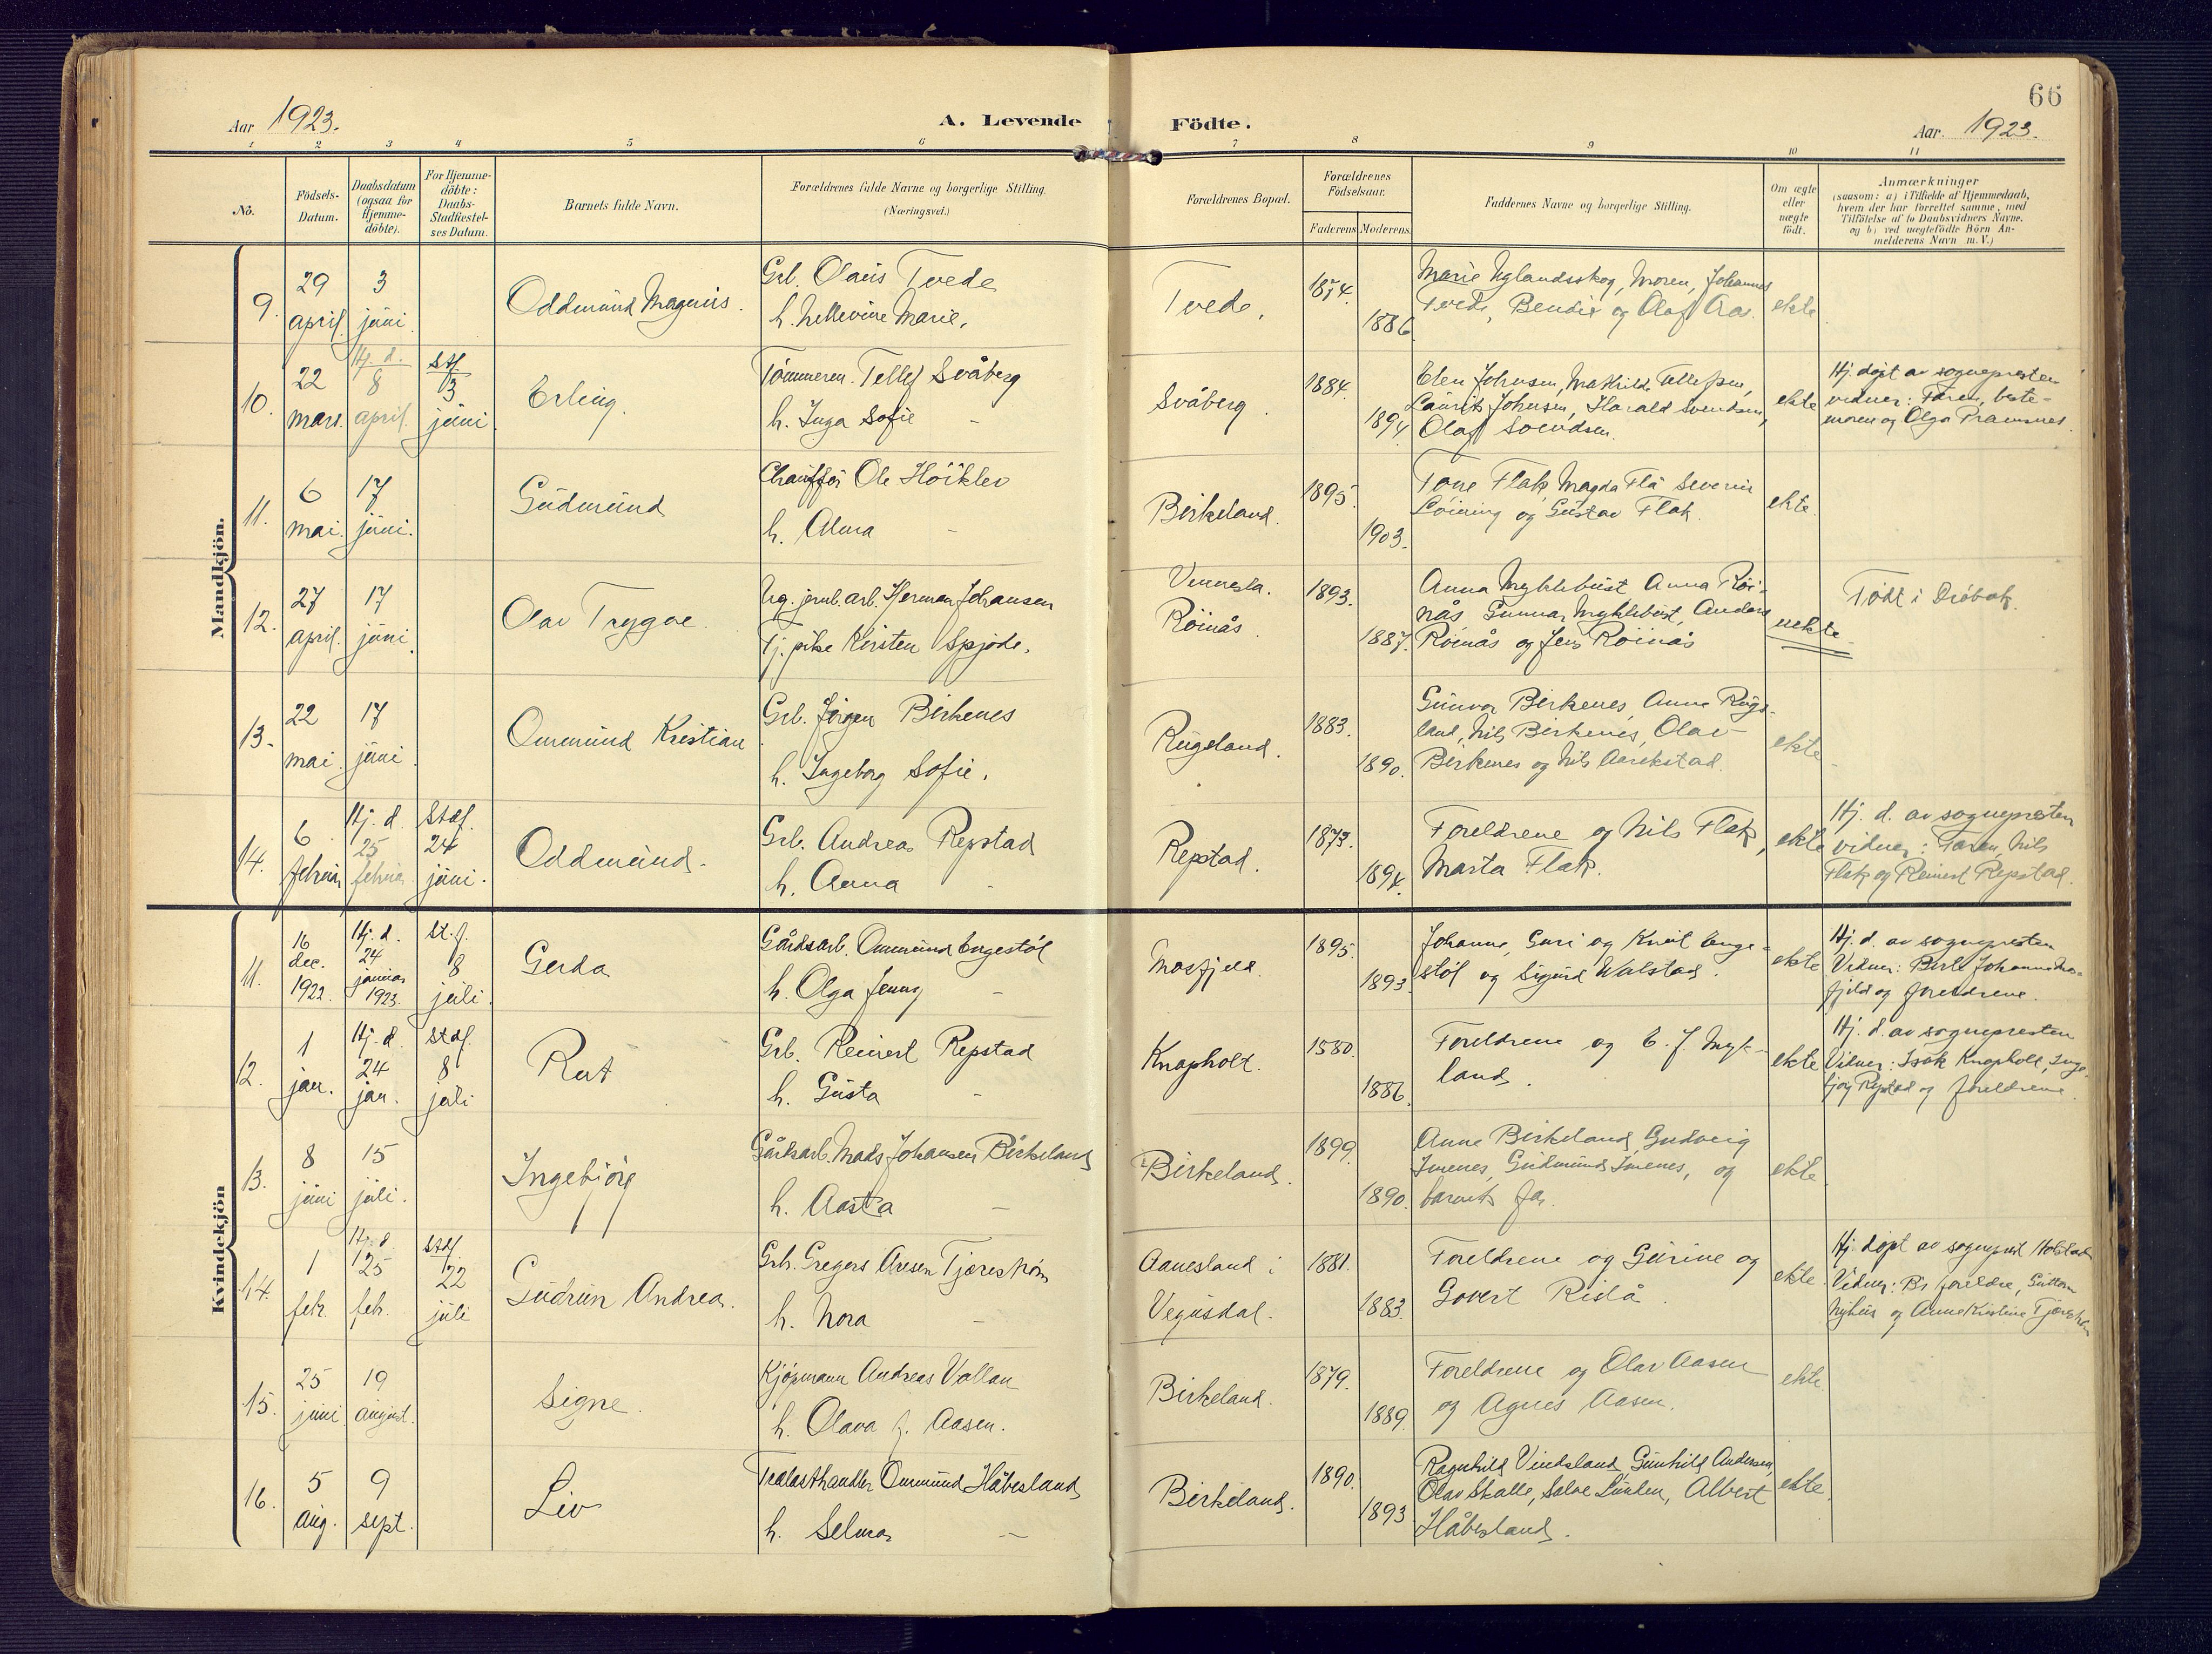 66
Aar 1923.
A. Levende Födte.
Aar. 1923.
1 2 3 4 5 6 7 8 9 10 11
No.
Födsels-
Datum.
Daabsdatum
(ogsaa for
Hjemme-
döbte).
For Hjemme-
döbte:
Daabs-
Stadfæstel-
ses Datum.
Barnets fulde Navn.
Forældrenes fulde Navne og borgerlige Stilling.
(Næringsvei.)
Forældrenes Bopæl.
Forældrenes
Födselsaar.
Faderens Moderens
Faddernes Navne og borgerlige Stilling.
Om ægte
eller
uægte
födt.
Anmærkninger
(saasom: a) i Tilfælde af Hjemmedaab,
hvem der har forrettet samme, med
Tilföielse af to Daabsvidners Navne.
og b) ved uægtefödte Börn An-
melderens Navn m. V.)
Mandkjön.
9.
29
april.
3
juni.
Oddmund Magnus.
Grb. Olaus Tvede
h. Nellevine Marie.
Tvede.
1874.
1886
Marie Uglandsskog, Moren, Johannes
Tvede, Bendix og Olaf Aas.
ekte
10.
22
mars.
Hj. d.
8
april.
Stf.
3
juni.
Erling.
Tömmerm. Tellef Svåberg
h. Inga Sofie –
Svåberg.
1884.
1894.
Elen Johnsen, Mathilde Tellefsen,
Laurits Johnsen, Harald Svendsen,
Olaf Svendsen.
ekte
Hj. döpt av sognepresten
vidner: Faren, beste-
moren og Olga
11.
6
mai.
17
juni.
Gudmund
Chauffør Ole Höiklev
h. Alma –
Birkeland.
1895.
1903.
Tone Flak, Magda Flå Severin
Löining og Gustav Flak.
ekte.
12.
27
april.
17
juni.
Olav Trygve.
Ug. jernb. arb. Herman Johansen
Tj. pike Kirsten Spjode.
Vennesla.
Röinås.
1893.
1887.
Anna Myklebust Anna Röi-
nås, Gunnar Myklebust, Anders
Röinås og Jens Röinås
uekte
Födt i Dröbak.
13.
22
mai.
17
juni.
Ommund Kristian
Grb. Jörgen Birkenes
h. Ingeborg Sofie.
Rugsland.
1883.
1890.
Gunvor Birkenes, Anna Rugs-
land, Nils Birkenes, Olav
Birkenes og Nils
ekte
14.
6
februar
Hj. d.
25
februar
Stadf.
24
juni.
Oddmund.
Grb. Andreas Repstad
h. Anna –
Repstad.
1873.
1894.
Foreldrene og Nils Flak,
Marta Flak.
ekte
Hj. d. av sognepresten
vidner: Faren, Nils
Flak og Reinert Repstad.
Kvindekjön
11.
16
dec.
1922.
Hj. d.
24
januar
1923.
St. f.
8
juli.
Gerda
Gårdsarb. Ommund Engestöl
h. Olga Jenny –
Mosfjeld.
1895.
1893.
Johanne, Guri og Knut Enge-
stöl og Sigurd Walstad.
ekte
Hj. d. av sognepresten
Vidner: Johanne Mos-
fjeld og foreldrene.
12.
1
jan.
Hj. d.
24
jan.
Stadf.
8
juli
Rut
Grb. Reinert Repstad
h. Gusta –
Knapholt.
1880.
1886.
Foreldrene og E. J. Myk-
land.
ekte
Hj. d. av sognepresten
Vidner: Isak Knapholt, Inge-
bjørg Repstad og foreldrene.
13.
8
juni
15
juli.
Ingebjörg
Gårdsarb. Mads Johansen Birkeland
h. Aasta –
Birkeland.
1899.
1890.
Anne Birkeland, Gudveig
Imenes, Gudmund Imenes, og
barnets far.
ekte
14.
1
febr.
Hj. d.
25
febr.
Stdf.
22
juli
Gudrun Andrea.
Grb. Gregers Aresen Tjæreshöm
h. Nora –
Aanesland i
Vegusdal.
1881.
1883.
Foreldrene og Gurine og
Govert Rislå.
ekte.
Hj. döpt av sogneprest Holstad
Vidner: Bs foreldre, Guttorm
Nyhus og Anne Kristine
15.
25
juni
19
august.
Signe.
Kjöpmann Andreas Vollan
h. Olava f. Aasen.
Birkeland.
1879.
1889.
Foreldrene og Olav Aasen
og Agnes Aasen.
ekte
16.
5
aug.
9
sept.
Liv
Trælasthandler Ommund Håbesland
h. Selma –
Birkeland.
1890.
1893
Ragnhild Vindsland, Gunhild Andersen,
Olav Skalle, Salve Lunden, Albert
Håbesland.
ekte.